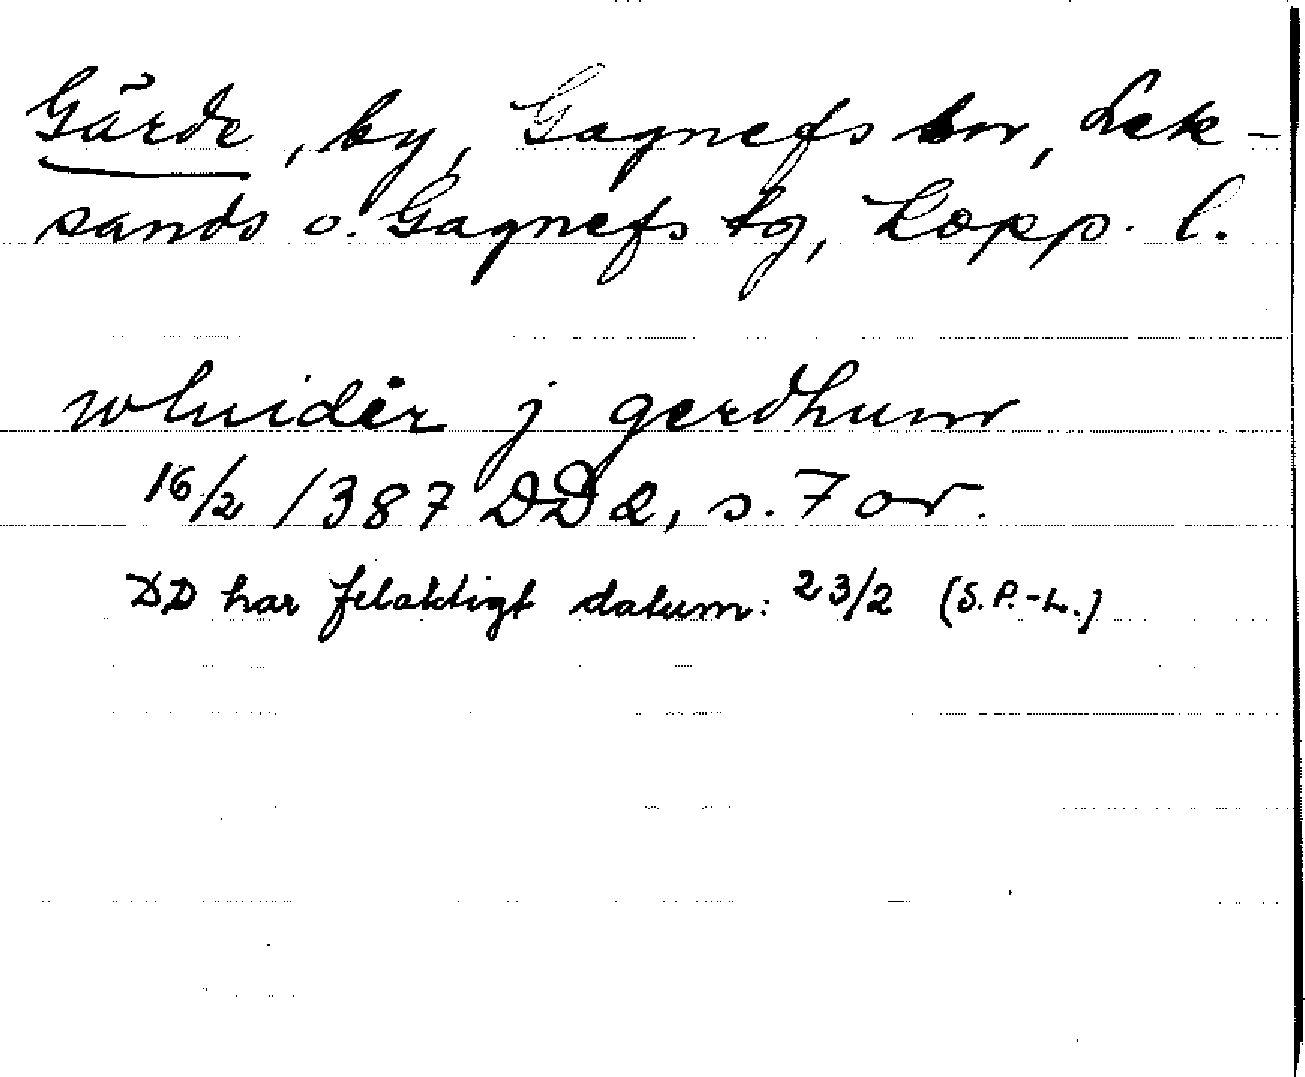 Gärde, by, Gagnefs sn, Lek-
sands o. Gagnefs tg, Kopp. l.
wluidär j gerdhum
16/2 1387 DD 2, s. 7 or.
DD har felaktigt datum: 23/2 (S.P.-L.)